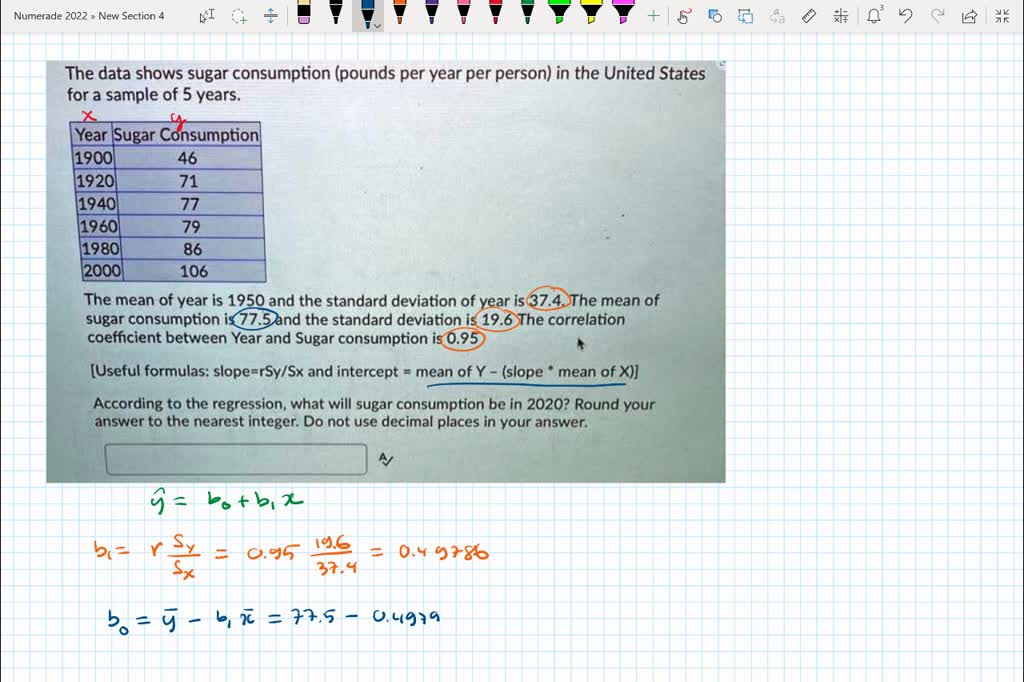 Numerade 2022 » New Section 4
3
The data shows sugar consumption (pounds per year per person) in the United States
for a sample of 5 years.
x y
Year Sugar Consumption
1900 46
1920 71
1940 77
1960 79
1980 86
2000 106
The mean of year is 1950 and the standard deviation of year is 37.4. The mean of
sugar consumption is 77.5 and the standard deviation is 19.6 The correlation
coefficient between Year and Sugar consumption is 0.95
[Useful formulas: slope=rSy/Sx and intercept = mean of Y – (slope * mean of X)]
According to the regression, what will sugar consumption be in 2020? Round your
answer to the nearest integer. Do not use decimal places in your answer.
ŷ = b₀ + b₁ x
b₁ = r Sy/Sx = 0.95 19.6/37.4 = 0.49786
b₀ = ȳ − b₁ x̄ = 77.5 − 0.4979